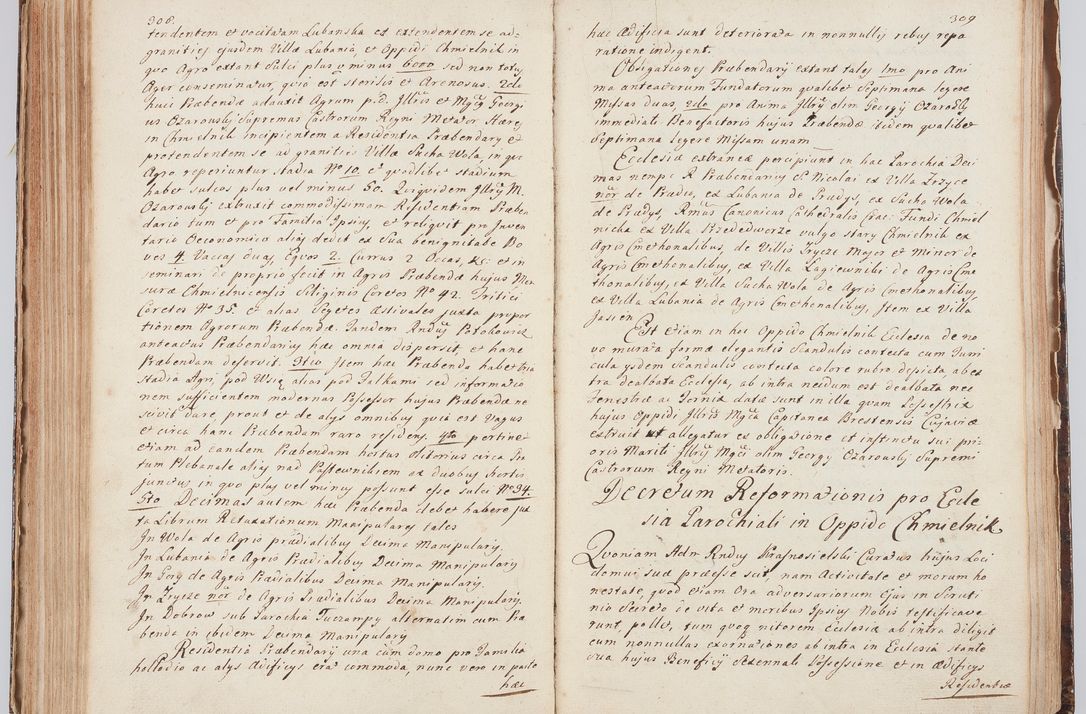 308.
tendentem et vocitatam Lubanska et extendentem se ad-
granities ejusdem Villæ Lubania, et Oppidi Chmielnik in
quo Agro extant Sulci plus v minus 60no sed non totus
Ager conseminatur, quia est sterilis et Arenosus. 2do
huic Præbendæ adauxit Agrum p.d. Jllris et Mgcs Georgi-
us Ozarowski Supremus Castrorum Regni Metator Hæres
in Chmielnik incipientem a Residentia Præbendarij et
pretendentem se ad granities Villæ Sucha Wola, in quo
Agro reperiuntur stadia No 10. et quodlibet stadium
habet sulcos plus vel minus 60. Quiquidem Jllris M.
Ozarowski extruxit commodissimam Residentiam Præben-
dario tum et pro Familia Ipsius, et reliquit pro Inven-
tario Oeconomico alias dedit ex Sua benignitate Bo-
ves 4. Vaccas duas, Equos 2. Currus 2 Occas, &c: et in
seminari de proprio fecit in Agris Præbendæ hujus Men-
suræ Chmielnicensis Siliginis Coretos No 42. Tritici
Coretos No 35. et alias Segetes æstivales juxta propor-
tionem Agrorum Præbendæ. Tandem Rndus Ptokowicz
anteactus Præbendarius hæc omnia dispersit, et hanc
Præbendam deseruit. 3tio Item hæc Præbenda habet tria
stadia Agri pod Wsią alias pod Jatkami sed informatio
nem sufficientem modernus Possessor hujus Præbendæ ne
scivit dare prout et de alys omnibus quia est Vagus
et circa hanc Præbendam raro residens. 4to pertinet
etiam ad eandem Præbendam hortus olitorius circa Pra-
tum Plebanale alias nad Pastewnikiem ex duobus hortis
junctus in quo plus vel minus possunt esse sulci No 34.
5to Decimas autem hæc Præbenda debet habere jux
ta Librum Retaxationum Manipulares tales
In Wola de Agris prædialibus Decima Manipularis.
In Lubania de Agris Prædialibus Decima Manipularis
In Gorg de Agris Prædialibus Decima Manipularis.
In Zrycze nor de Agris Prædialibus Decima Manipularis.
In Dobrow sub Parochia Tuczampy alternatim cum Præ
benda in ibidem Decima Manipularis
Residentia Præbendarij una cum domo pro Familia
holladio ac alys ædificys erat commoda, nunc vero in parte
hæc
309
hæc Ædificia sunt deteriorata in nonnullis rebus repa
ratione indigent.
Obligationes Præbendarij extant tales 1mo pro Ani
ma anteactorum Fundatorum qualibet Septimana legere
Missas duas, 2do pro Anima Jllris olim Georgij Ozarowski
immediati Benefactoris hujus Præbendæ ibidem qualibet
Septimana legere Missam unam
Ecclesiæ extraneæ percipiunt in hac Parochia Deci
mas nempe R Præbendarius St Nicolai ex Villa Zrzyce
nor de Prædio, ex Lubania de Prædys, ex Sucho Wola
de Prædys, Rmus Canonicus Cathedralis Crac: Fundi Chmiel
nicka ex Villa Przededworze vulgo stary Chmielnik ex
Agris Cmethonalibus, de Villis Zrycze Major et Minor de
Agris Cmethonalibus, ex Villa Łagiewniki de Agris Cme
thonalibus, ex Villa Sucha Wola de Agris Cmethonalibus
ex Villa Lubania de Agris Cmethonalibus, Item ex Villa
Jasien
Est etiam in hoc Oppido Chmielnik Ecclesia de no
vo murata formæ elegantis Scandulis contecta cum Turri
cula ysdem Scandulis contecta colore rubro depicta, ab ex
tra dealbata Ecclesia, ab intra necdum est dealbata nec
Fenestræ ac Fornix datæ sunt in illa quam Possessrix
hujus Oppidi Jllris Mgca Capitanea Brestensis Cujaviæ
extruit ut allegatur ex obligatione et instinctu sui pri-
oris Mariti Jllris Mgci olim Georgy Ozarowski Supremi
Castrorum Regni Metatoris.
Decretum Reformationis pro Eccle
sia Parochiali in Oppido Chmielnik
Quoniam Adm Rndus Krasnosielski Curatus hujus Loci
domui suæ præesse scit, nam Activitate et morum ho
nestate, quod etiam Ora adversariorum Ejus in Scruti
nio Secreto de vita et moribus Ipsius Nobis testificave
runt pollet, tum quoq nitorem Ecclesiæ ab intra diligit
cum nonnullas exornationes ab intra in Ecclesia stante
sua hujus Beneficij Sexennali Possessione et in ædificys
Residentiæ